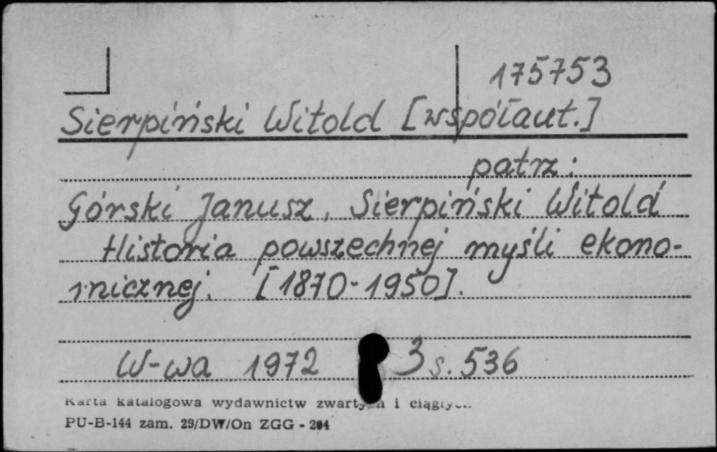 175753
Sierpiński Witold [współaut.]
patrz:
Górski Janusz, Sierpiński Witold
Historia powszechnej myśli ekono-
micznej. [1870-1950].
W-wa 1972 3 s. 536
Karta katalogowa wydawnictw zwartych i ciągłych
PU-B-144 zam. 29/DW/On ZGG - 204